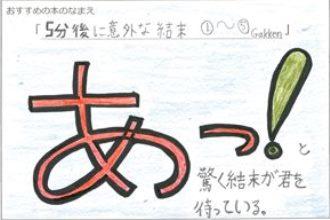 おすすめの本のなまえ
「5分後に意外な結末 ①～⑤ Gakken」
あっ!と
驚く結末が君を
待っている。